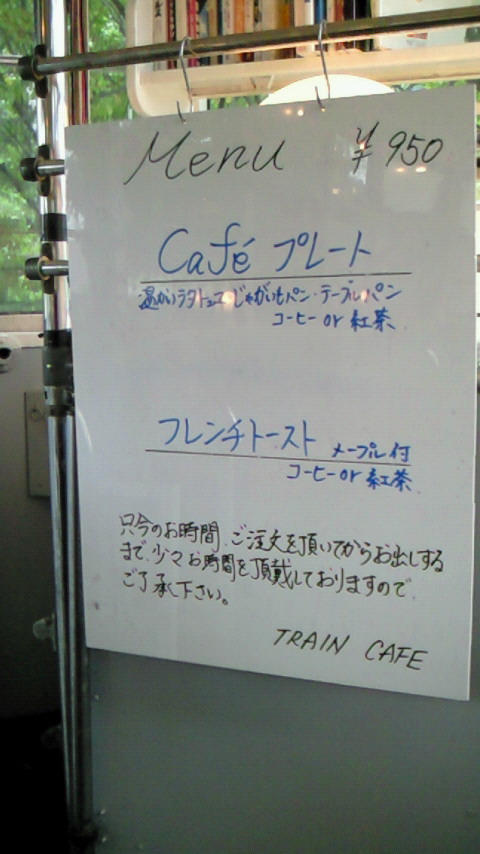 Menu ¥950
Café プレート
温かいラタトゥユ・じゃがいもパン・テーブルパン
コーヒー or 紅茶
フレンチトースト メープル付
コーヒー or 紅茶
只今のお時間、ご注文を頂いてからお出しする
まで、少々お時間を頂戴しておりますので
ご了承下さい。
TRAIN CAFE